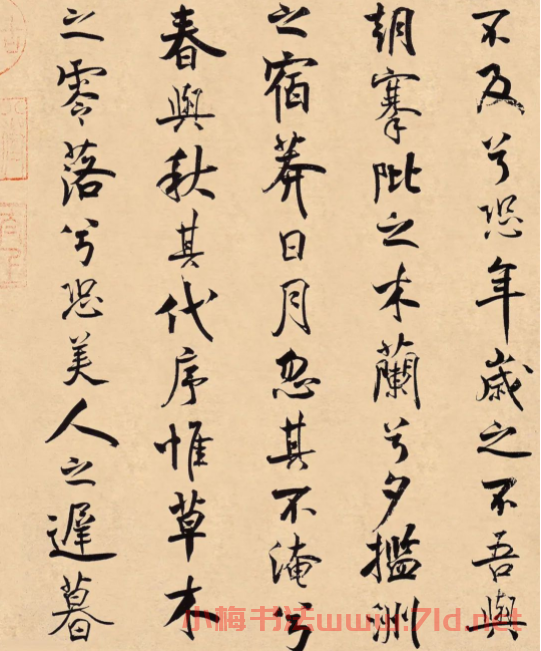 不及兮恐年歲之不吾與
朝搴阰之木蘭兮夕攬洲
之宿莽日月忽其不淹兮
春與秋其代序惟草木
之零落兮恐美人之遲暮
小梅书法www.71d.net